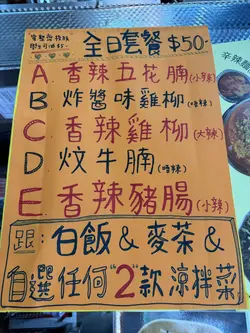 全日套餐 $50-
A. 香辣五花腩(小辣)
B 炸醬味雞柳(唔辣)
C 香辣雞柳(大辣)
D 炆牛腩(唔辣)
E. 香辣豬腸(小辣)
跟: 白飯 & 麥茶 &
自選任何"2"款涼拌菜
辛辣